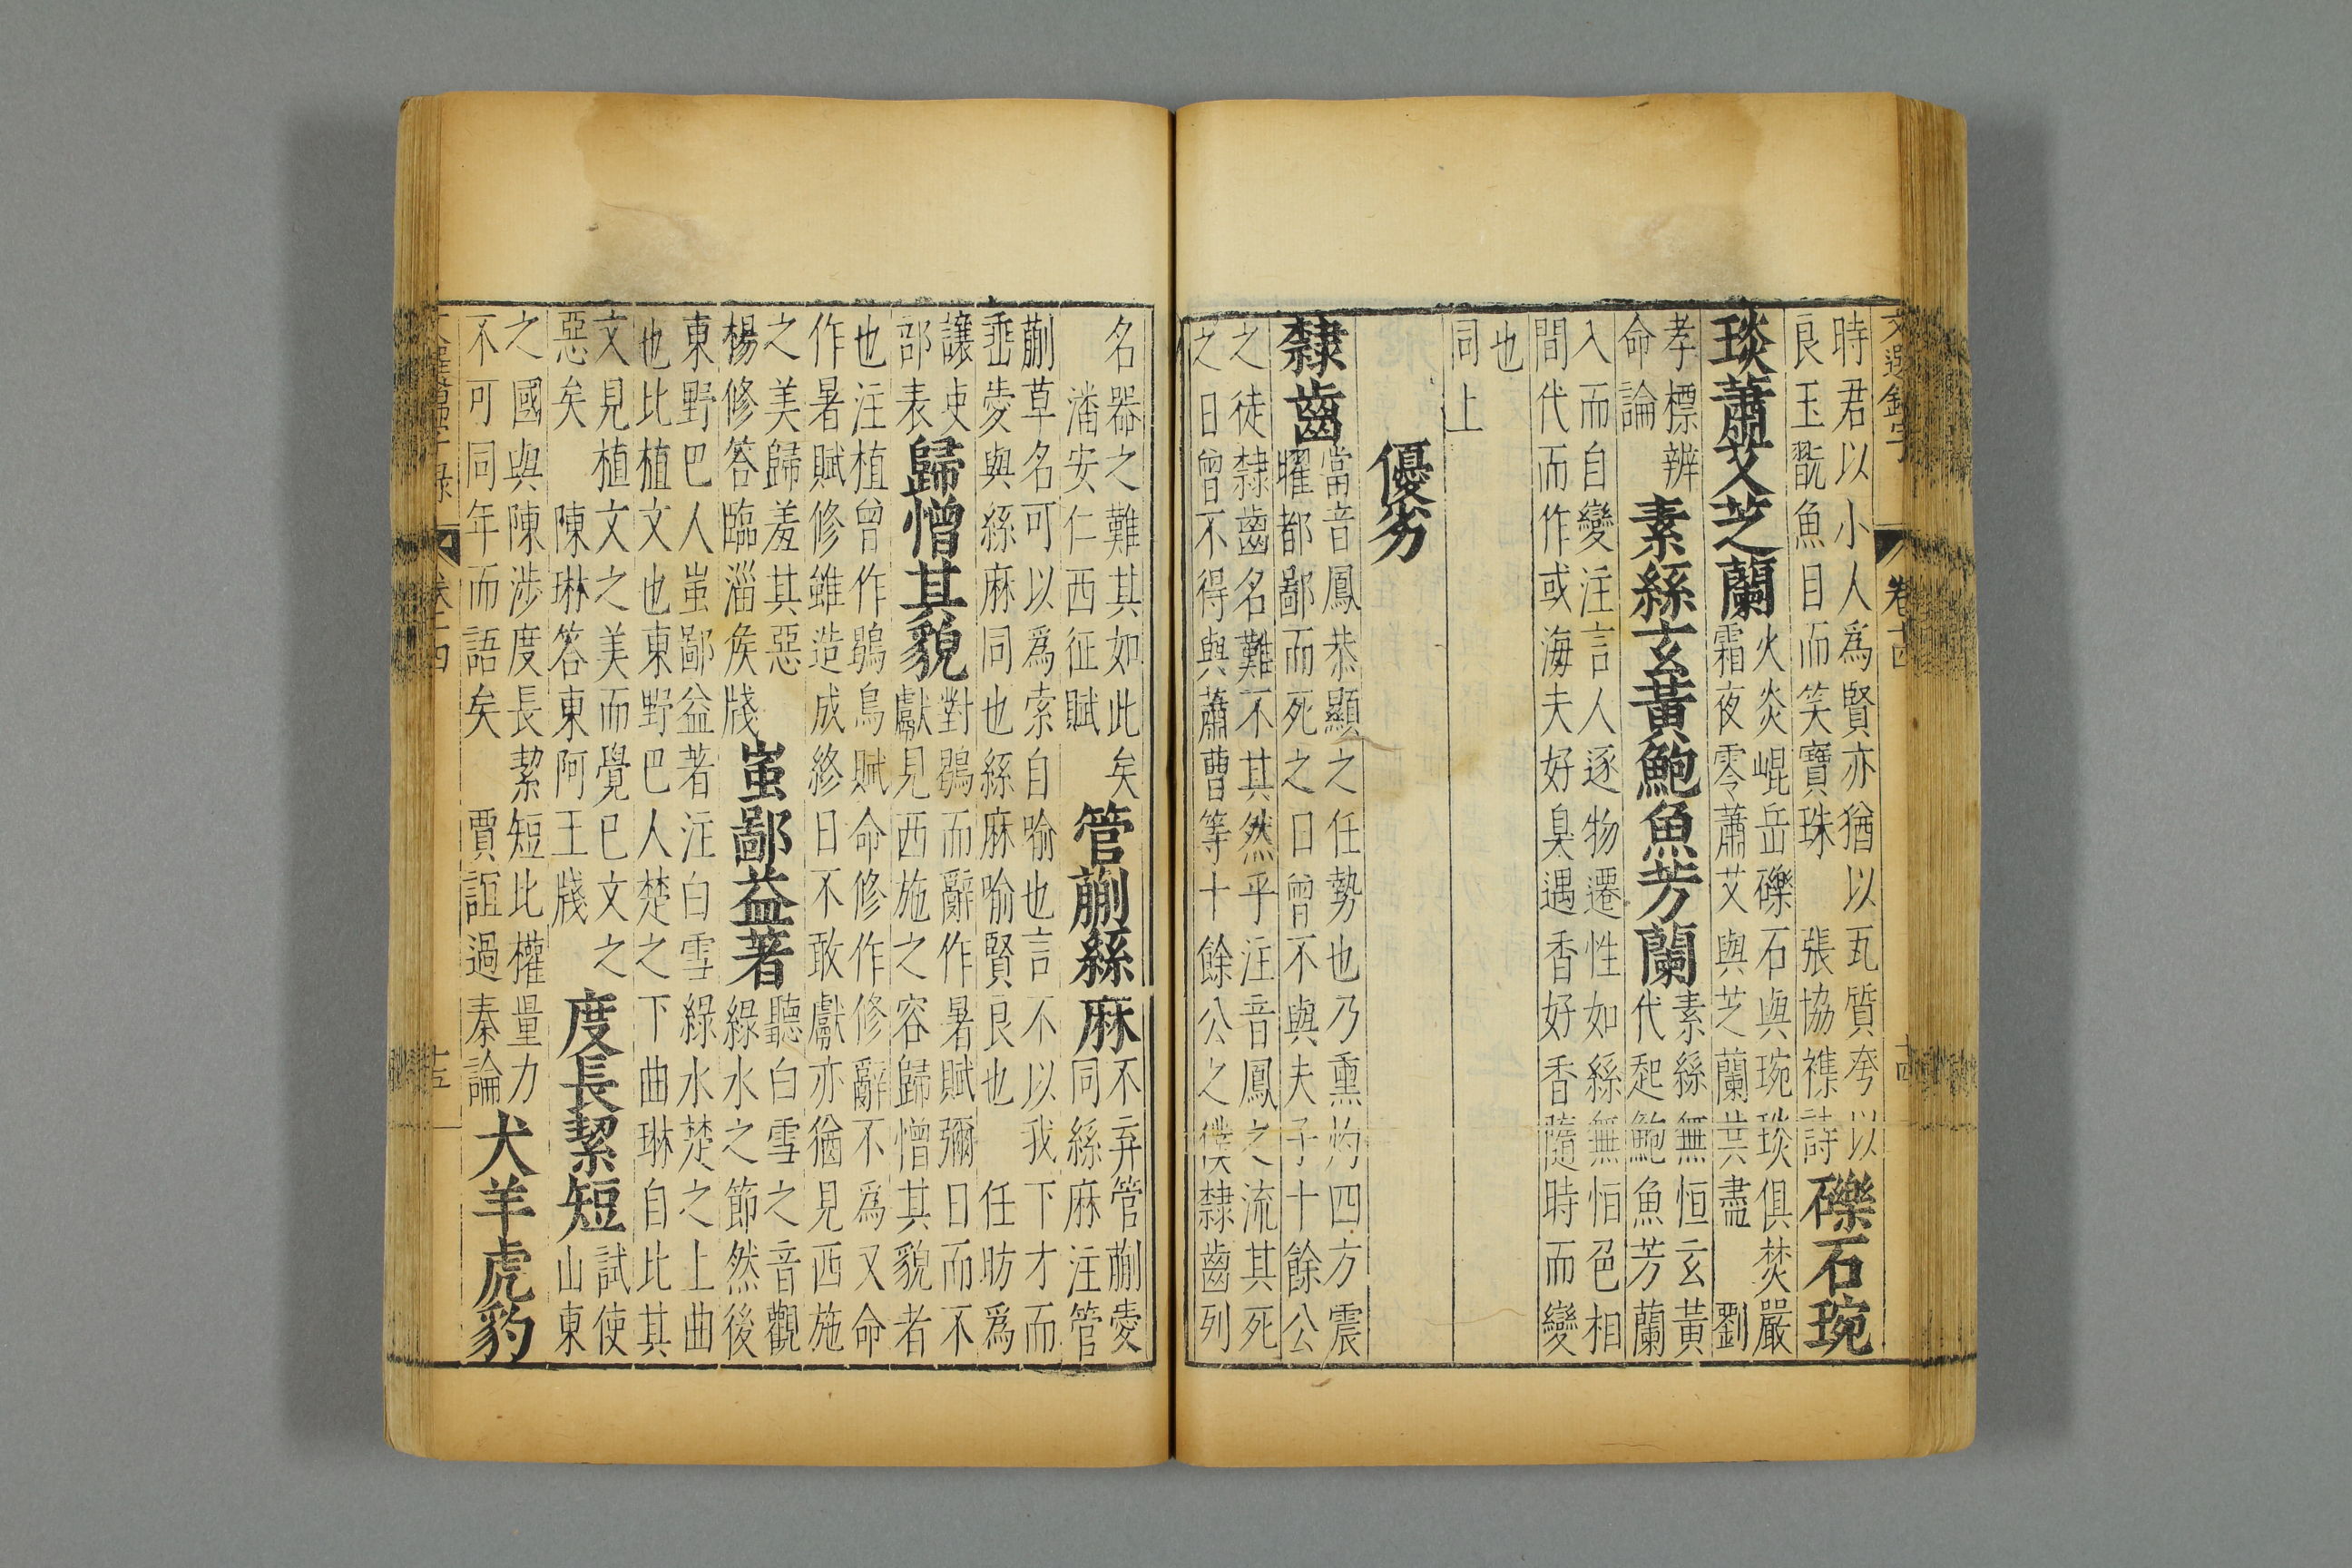 時君以小人爲賢亦猶以瓦質夸以
良玉翫魚目而笑寶珠 張協襍詩
礫石琬
琰蕭艾芝蘭
火炎崐岳礫石與琬琰俱焚嚴
霜夜零蕭艾與芝蘭共盡 劉
孝標辨
命論
素絲玄黃鮑魚芳蘭
素絲無恒玄黃
代起鮑魚芳蘭
入而自變注言人逐物遷性如絲無恒色相
間代而作或海夫好臭遇香好香隨時而變
也
同上
優劣
隸齒
當音鳳恭顯之任勢也乃熏灼四方震
曜都鄙而死之日曾不與夫子十餘公
之徒隸齒名難不其然乎注音鳳之流其死
之日曾不得與蕭曹等十餘公之僕隸齒列
名器之難其如此矣
潘安仁西征賦
管蒯絲麻
不弃管蒯愛
同絲麻注管
蒯草名可以爲索自喻也言不以我下才而
垂愛與絲麻同也絲麻喻賢良也 任昉爲
讓吏
部表
歸憎其貌
對鶡而辭作暑賦彌日而不
獻見西施之容歸憎其貌者
也注植曾作鶡鳥賦命修作修辭不爲又命
作暑賦修雖造成終日不敢獻亦猶見西施
之美歸羞其惡
楊修答臨淄矦牋
蚩鄙益著
聽白雪之音觀
綠水之節然後
東野巴人蚩鄙益著注白雪綠水楚之上曲
也比植文也東野巴人楚之下曲琳自比其
文見植文之美而覺已文之
惡矣 陳琳答東阿王牋
度長絜短
試使
山東
之國與陳涉度長絜短比權量力
不可同年而語矣 賈誼過秦論
犬羊虎豹